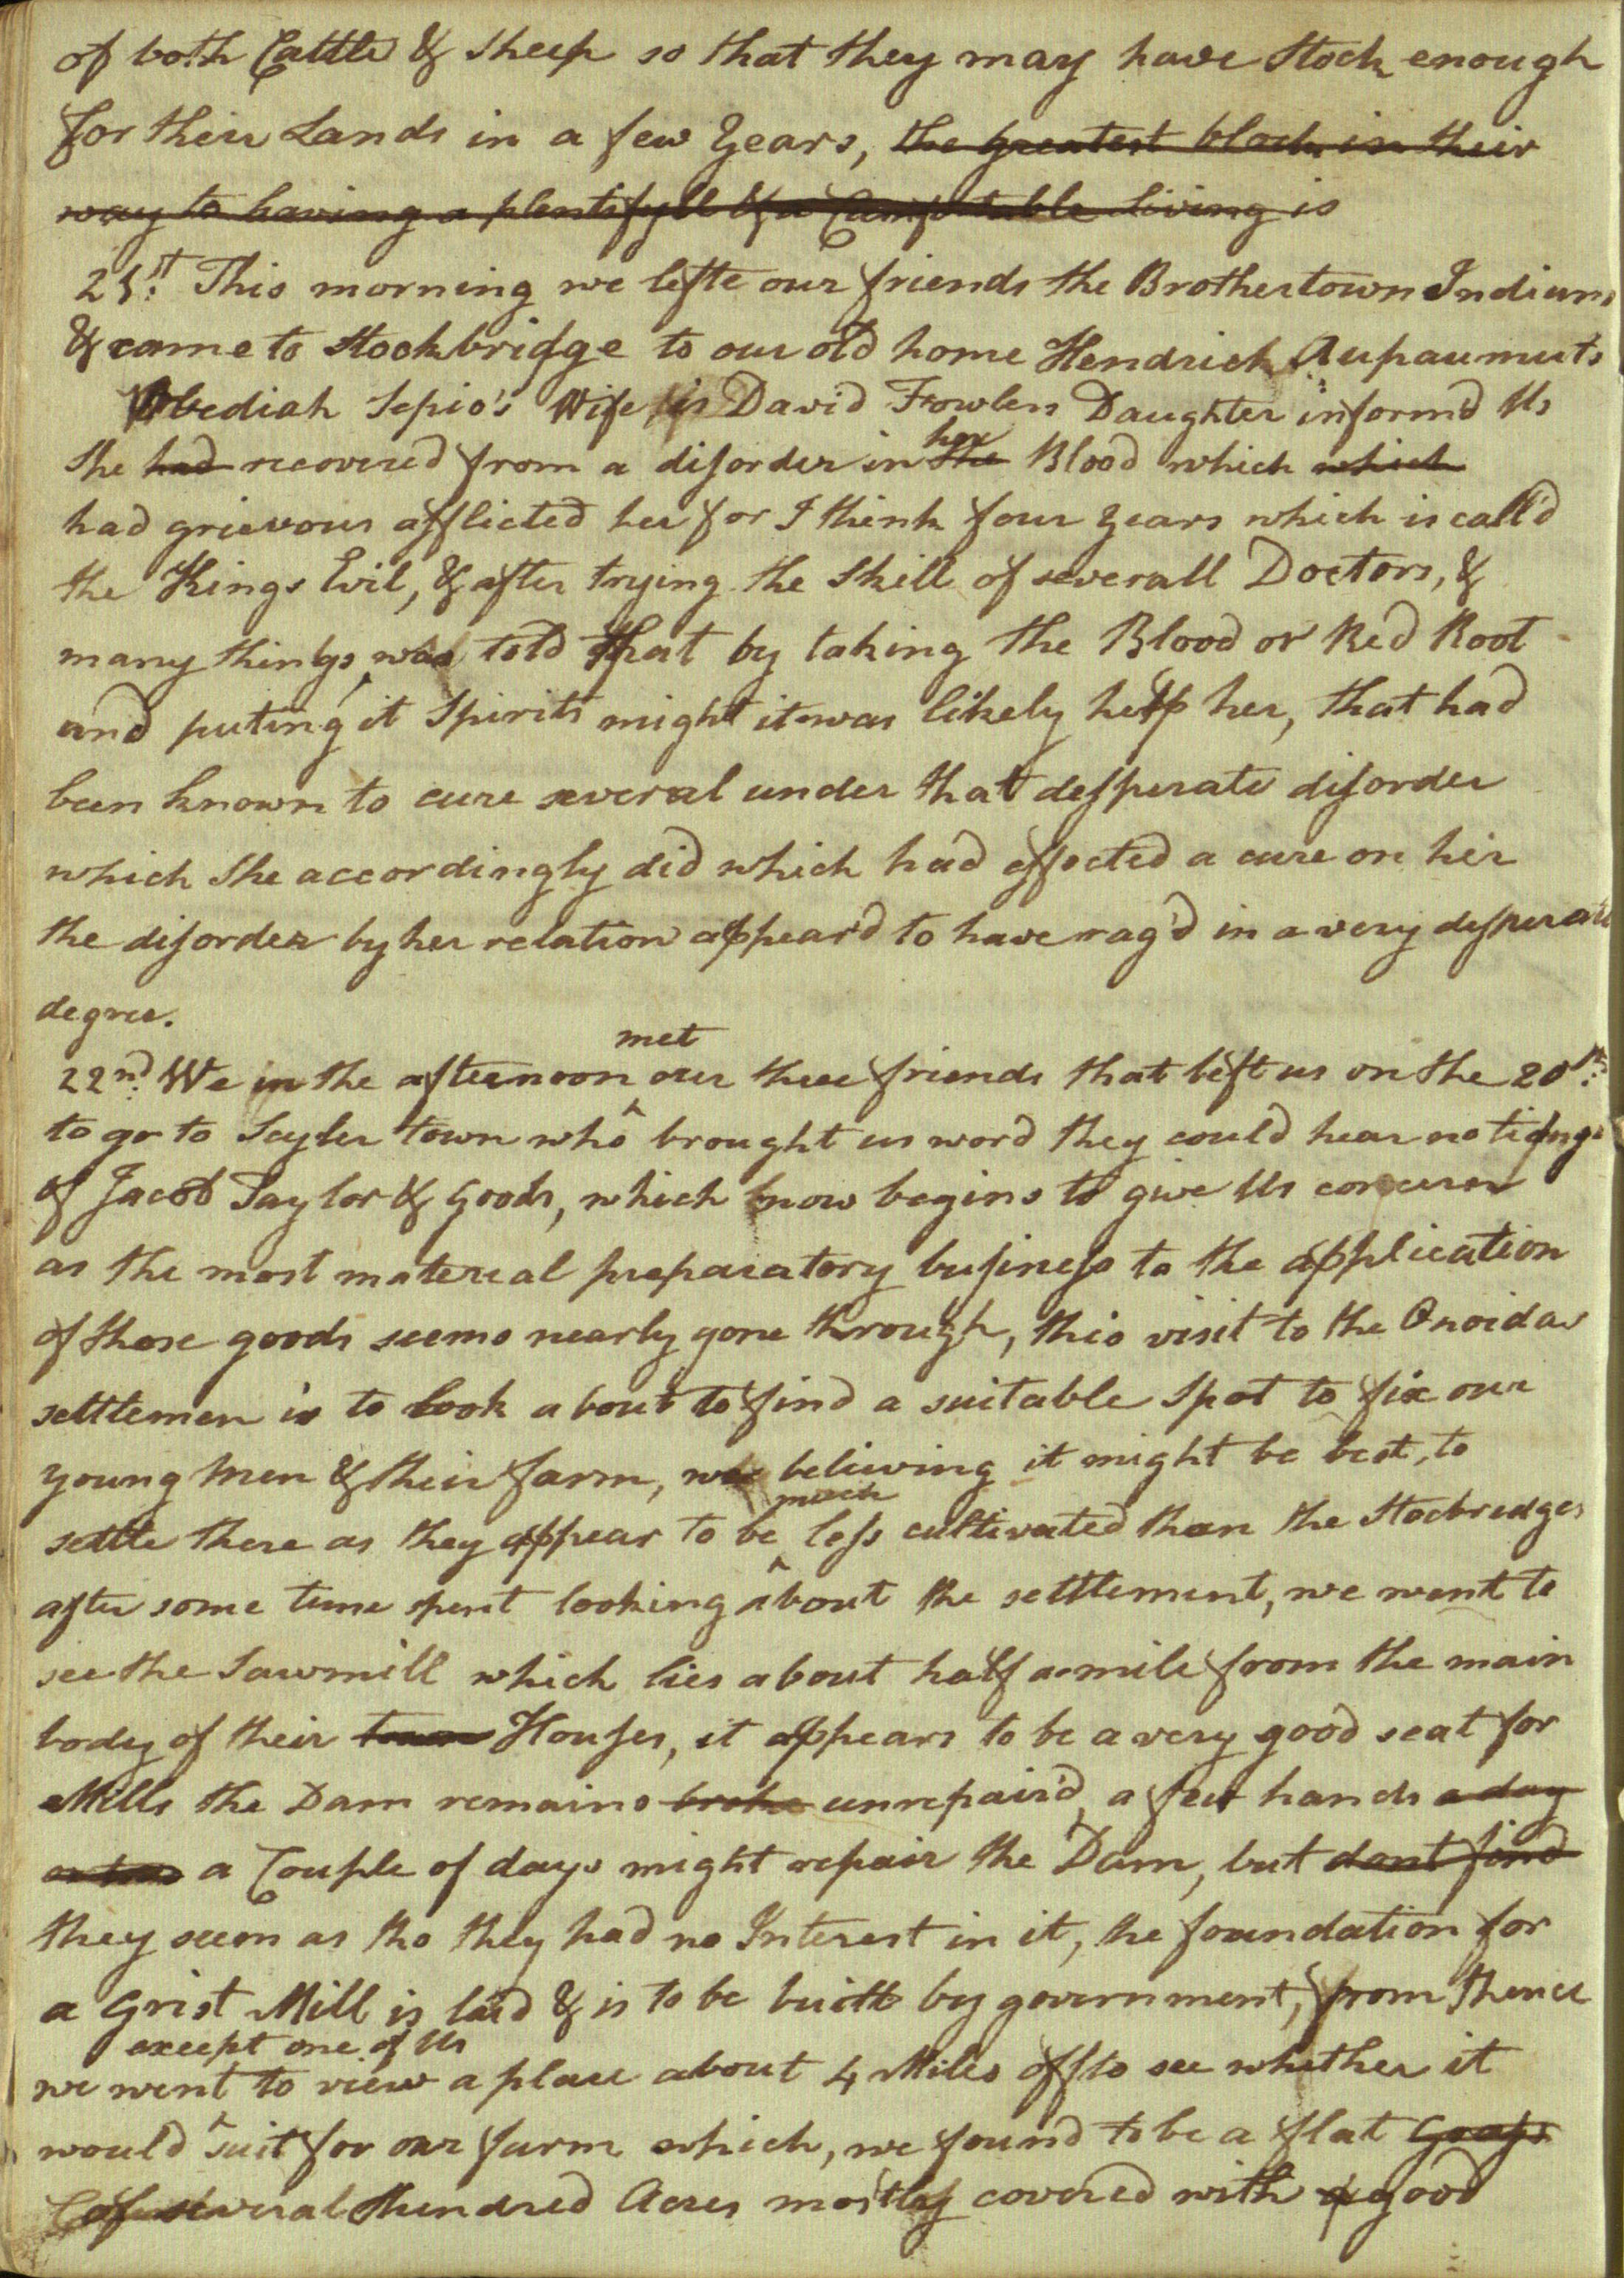 of both Cattle & Sheep so that they may have Stock enough
for their Lands in a few Years, the greatest block in their
way to having a plentifull & a Comfortable Living is
21st This morning we lefte our friends the Brothertown Indians
& came to Stockbridge to our old home Hendrick Aupaumuts
Obediah Sepio's Wife is David Fowlers Daughter inform'd Us
her
She had recovered from a disorder in the Blood which which
had grievous afflicted her for I think four Years which is call'd
the Kings Evil, & after trying the Skill of severall Doctors, &
many things, was told that by taking the Blood or Red Root
and puting it Spirits might it was likely help her, that had
been known to cure several under that desperate disorder
which She accordingly did which had effected a cure on her
the disorder by her relation appear'd to have rag'd in a very desperate
degree.
met
22nd We in the afternoon ^ our three friends that left us on the 20th
to go to Scyler town who brought us word they could hear no tidings
of Jacob Taylor & Goods, which now begins to give Us concern
as the most material preparatory business to the application
of those goods seems nearly gone through, this visit to the Onoidas
settlemen is to look about to find a suitable Spot to fix our
young Men & their farm, we believing it might be best, to
much
settle there as they appear to be ^ less cultivated than the Stocbredges
after some time spent looking about the settlement, we went to
see the Sawmill which lies about half a mile from the main
body of their town Houses, it appears to be a very good seat for
Mills the Dam remains broke unrepair'd, a few hands a day
or two a Couple of days might repair the Dam, but dont find
they seem as tho they had no Interest in it, the foundation for
a Grist Mill is laid & is to be built by government, from thence
except one of Us
we went ^ to view a place about 4 Miles off to see whether it
would suit for our farm which, we found to be a flat
of several Hundred Acres mostly covered with a good